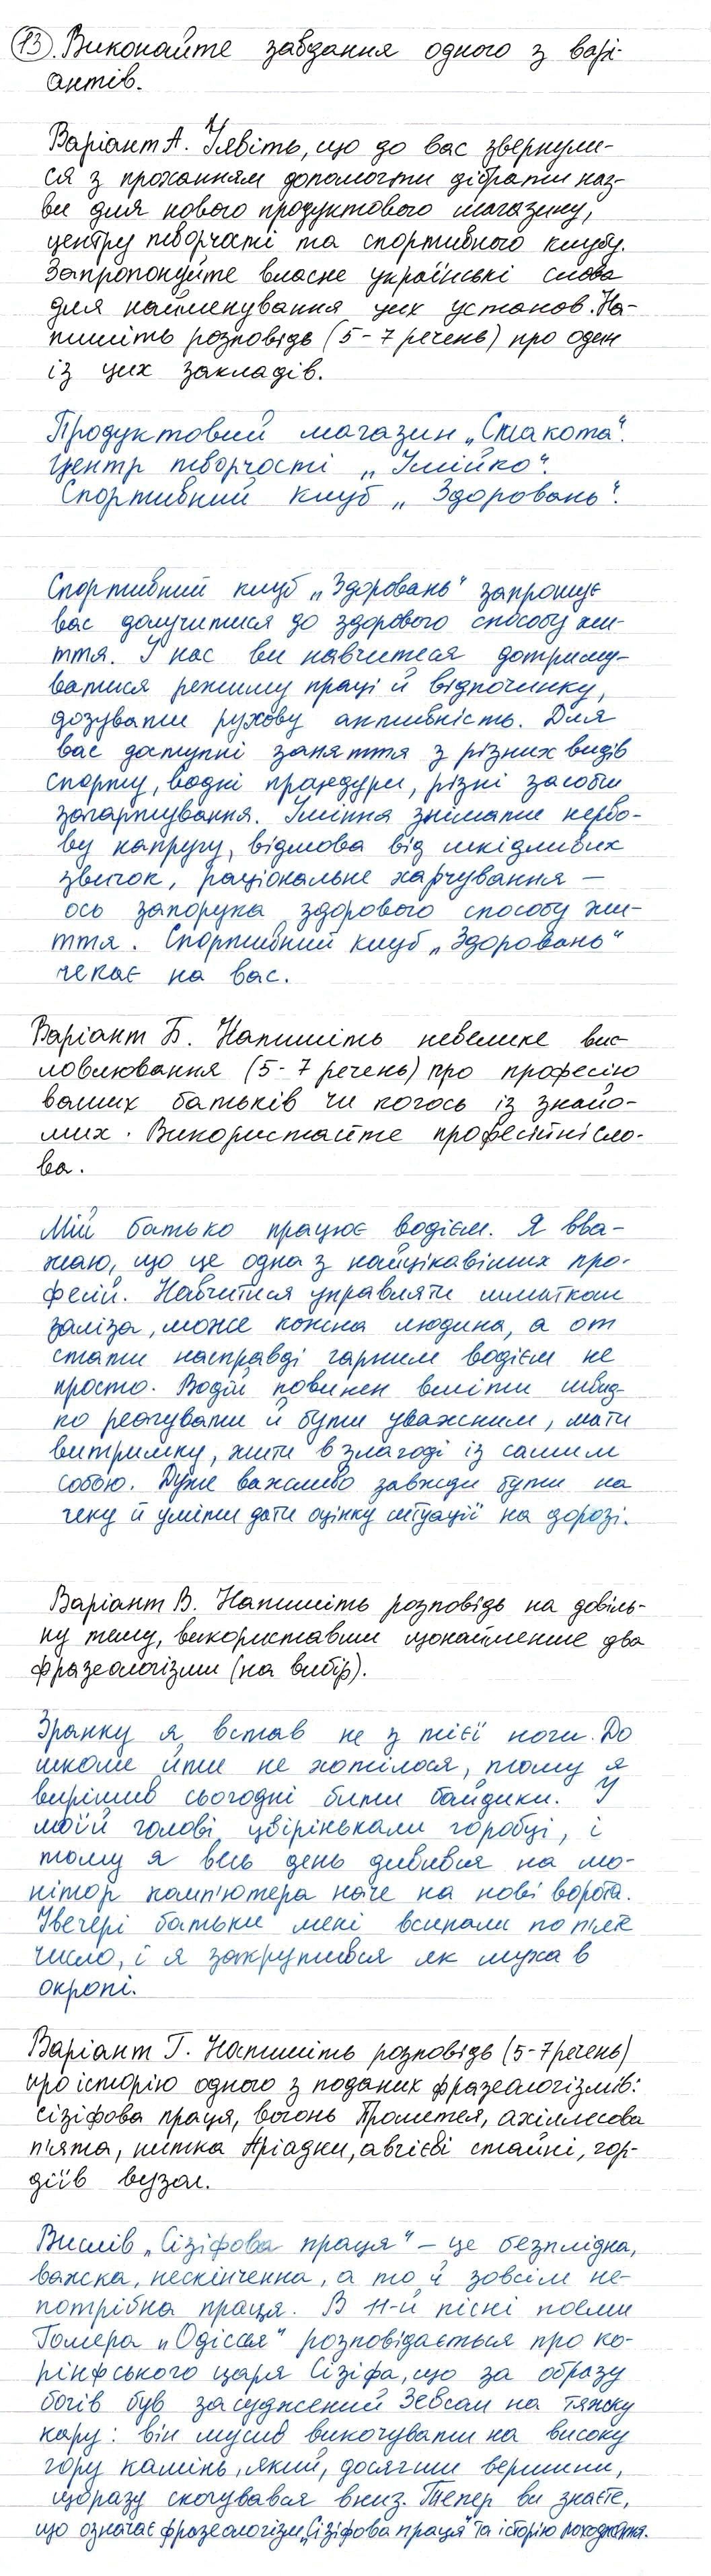 13. Виконайте завдання одного з варі-
антів.
Варіант А. Уявіть, що до вас звернули-
ся з проханням допомогти дібрати наз-
ви для нового продуктового магазину,
центру творчості та спортивного клубу.
Запропонуйте власне українські слова
для найменування цих установ. На-
пишіть розповідь (5-7 речень) про один
із цих закладів.
Продуктовий магазин „Смакота“.
Центр творчості „Умійко“.
Спортивний клуб „Здоровань“.
Спортивний клуб „Здоровань“ запрошує
вас долучитися до здорового способу жи-
ття. У нас ви навчитеся дотриму-
ватися режиму праці й відпочинку,
дозувати рухову активність. Для
вас доступні заняття з різних видів
спорту, водні процедури, різні засоби
загартування. Уміння знімати нерво-
ву напругу, відмова від шкідливих
звичок, раціональне харчування —
ось запорука здорового способу жи-
ття. Спортивний клуб „Здоровань“
чекає на вас.
Варіант Б. Напишіть невелике вис-
ловлювання (5-7 речень) про професію
ваших батьків чи когось із знайо-
мих. Використайте професійні сло-
ва.
Мій батько працює водієм. Я вва-
жаю, що це одна з найцікавіших про-
фесій. Навчитися управляти шматком
заліза, може кожна людина, а от
стати насправді гарним водієм не
просто. Водій повинен вміти швид-
ко реагувати й бути уважним, мати
витримку, жити в злагоді із самим
собою. Дуже важливо завжди бути на
чеку й уміти дати оцінку ситуації на дорозі.
Варіант В. Напишіть розповідь на довіль-
ну тему, використавши щонайменше два
фразеологізми (на вибір).
Зранку я встав не з тієї ноги. До
школи йти не хотілося, тому я
вирішив сьогодні бити байдики. У
моїй голові цвірінькали горобці, і
тому я весь день дивився на мо-
нітор комп'ютера наче на нові ворота.
Увечері батьки мені всипали по п'яте
число, і я закрутився як муха в
окропі.
Варіант Г. Напишіть розповідь (5-7 речень)
про історію одного з поданих фразеологізмів:
сізіфова праця, вогонь Прометея, ахіллесова
п'ята, нитка Аріадни, авгієві стайні, гор-
діїв вузол.
Вислів „Сізіфова праця“ — це безплідна,
важка, нескінченна, а то й зовсім не-
потрібна праця. В 11-й пісні поеми
Гомера „Одіссея“ розповідається про ко-
рінфського царя Сізіфа, що за образу
богів був засуджений Зевсом на тяжку
кару: він мусив викочувати на високу
гору камінь, який, досягши вершини,
щоразу скочувався вниз. Тепер ви знаєте,
що означає фразеологізм „Сізіфова праця“ та історію походження.